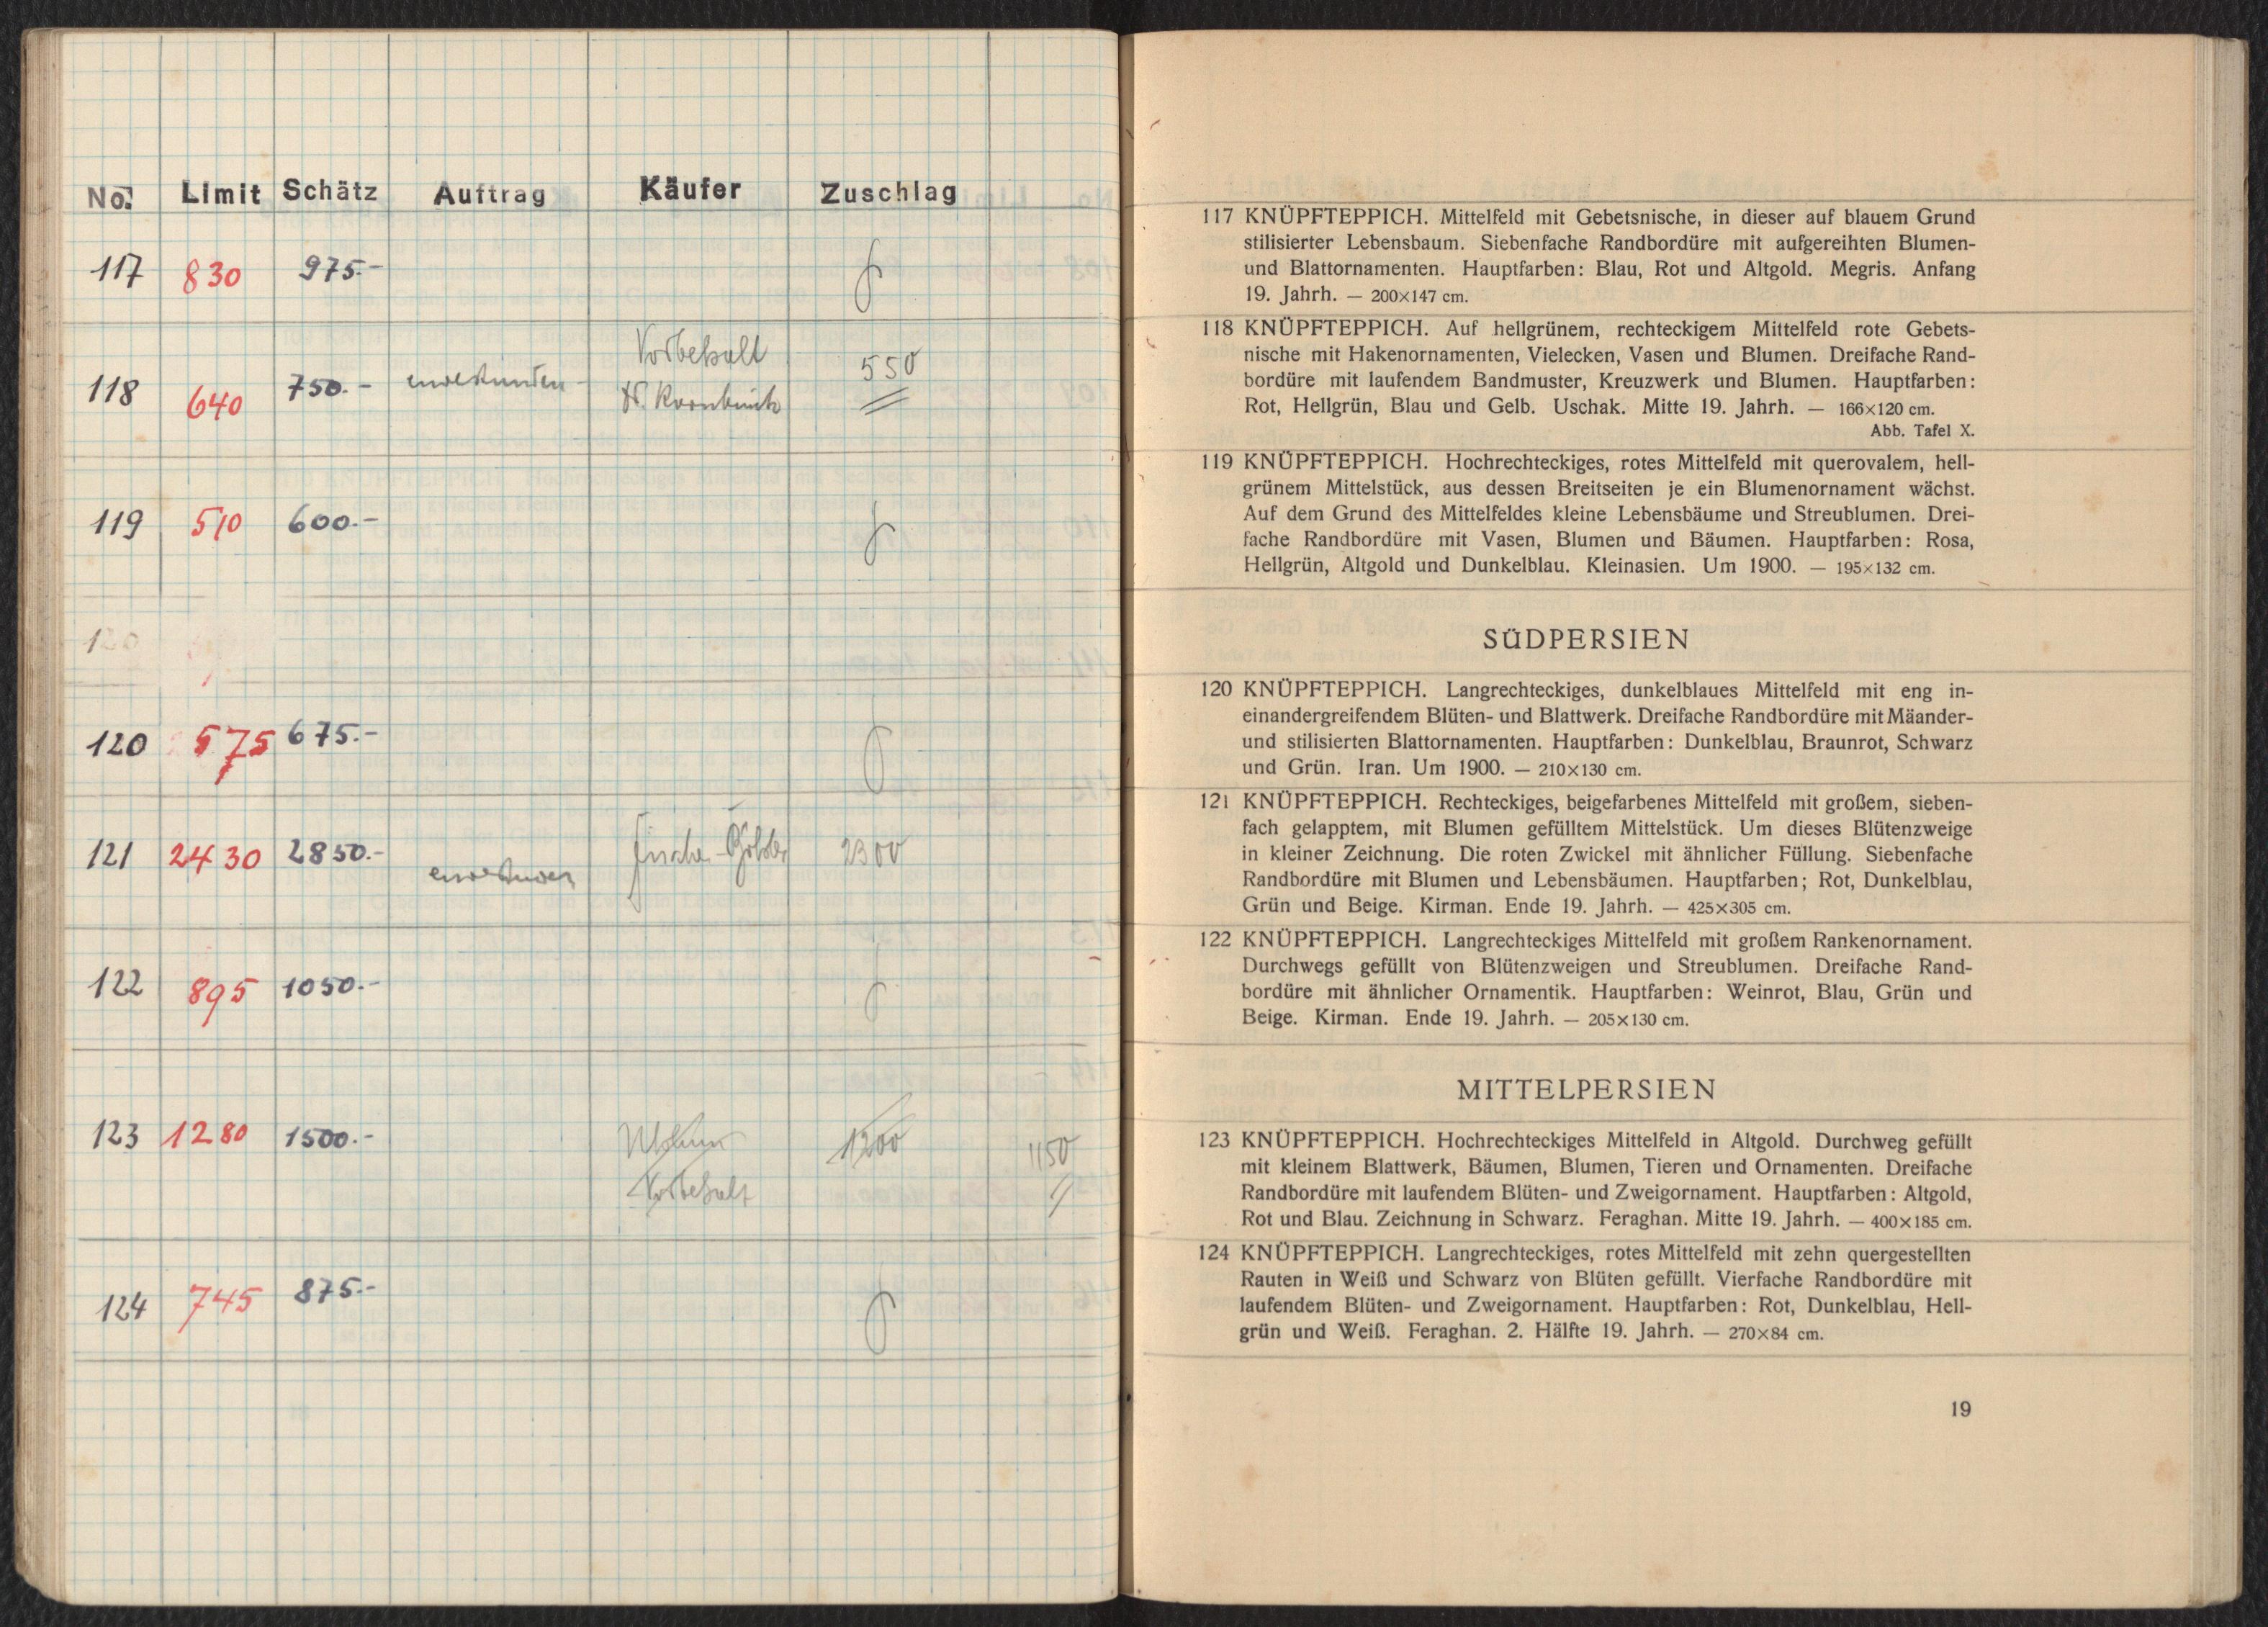 No. Limit Schätz Auftrag Käufer Zuschlag
117 830 975.-
Vorbehalt
118 640 750.- 550
119 510 600.-
120
120 575 675.-
121 2430 2850.- 2300
122 895 1050.-
123 1280 1500.- 1200 1150
Vorbehalt
124 745 875.-
117 KNÜPFTEPPICH. Mittelfeld mit Gebetsnische, in dieser auf blauem Grund
stilisierter Lebensbaum. Siebenfache Randbordüre mit aufgereihten Blumen-
und Blattornamenten. Hauptfarben: Blau, Rot und Altgold. Megris. Anfang
19. Jahrh. — 200×147 cm.
118 KNÜPFTEPPICH. Auf hellgrünem, rechteckigem Mittelfeld rote Gebets-
nische mit Hakenornamenten, Vielecken, Vasen und Blumen. Dreifache Rand-
bordüre mit laufendem Bandmuster, Kreuzwerk und Blumen. Hauptfarben:
Rot, Hellgrün, Blau und Gelb. Uschak. Mitte 19. Jahrh. — 166×120 cm.
Abb. Tafel X.
119 KNÜPFTEPPICH. Hochrechteckiges, rotes Mittelfeld mit querovalem, hell-
grünem Mittelstück, aus dessen Breitseiten je ein Blumenornament wächst.
Auf dem Grund des Mittelfeldes kleine Lebensbäume und Streublumen. Drei-
fache Randbordüre mit Vasen, Blumen und Bäumen. Hauptfarben: Rosa,
Hellgrün, Altgold und Dunkelblau. Kleinasien. Um 1900. — 195×132 cm.
SÜDPERSIEN
120 KNÜPFTEPPICH. Langrechteckiges, dunkelblaues Mittelfeld mit eng in-
einandergreifendem Blüten- und Blattwerk. Dreifache Randbordüre mit Mäander-
und stilisierten Blattornamenten. Hauptfarben: Dunkelblau, Braunrot, Schwarz
und Grün. Iran. Um 1900. — 210×130 cm.
121 KNÜPFTEPPICH. Rechteckiges, beigefarbenes Mittelfeld mit großem, sieben-
fach gelapptem, mit Blumen gefülltem Mittelstück. Um dieses Blütenzweige
in kleiner Zeichnung. Die roten Zwickel mit ähnlicher Füllung. Siebenfache
Randbordüre mit Blumen und Lebensbäumen. Hauptfarben; Rot, Dunkelblau,
Grün und Beige. Kirman. Ende 19. Jahrh. — 425×305 cm.
122 KNÜPFTEPPICH. Langrechteckiges Mittelfeld mit großem Rankenornament.
Durchwegs gefüllt von Blütenzweigen und Streublumen. Dreifache Rand-
bordüre mit ähnlicher Ornamentik. Hauptfarben: Weinrot, Blau, Grün und
Beige. Kirman. Ende 19. Jahrh. — 205×130 cm.
MITTELPERSIEN
123 KNÜPFTEPPICH. Hochrechteckiges Mittelfeld in Altgold. Durchweg gefüllt
mit kleinem Blattwerk, Bäumen, Blumen, Tieren und Ornamenten. Dreifache
Randbordüre mit laufendem Blüten- und Zweigornament. Hauptfarben: Altgold,
Rot und Blau. Zeichnung in Schwarz. Feraghan. Mitte 19. Jahrh. — 400×185 cm.
124 KNÜPFTEPPICH. Langrechteckiges, rotes Mittelfeld mit zehn quergestellten
Rauten in Weiß und Schwarz von Blüten gefüllt. Vierfache Randbordüre mit
laufendem Blüten- und Zweigornament. Hauptfarben: Rot, Dunkelblau, Hell-
grün und Weiß. Feraghan. 2. Hälfte 19. Jahrh. — 270×84 cm.
19